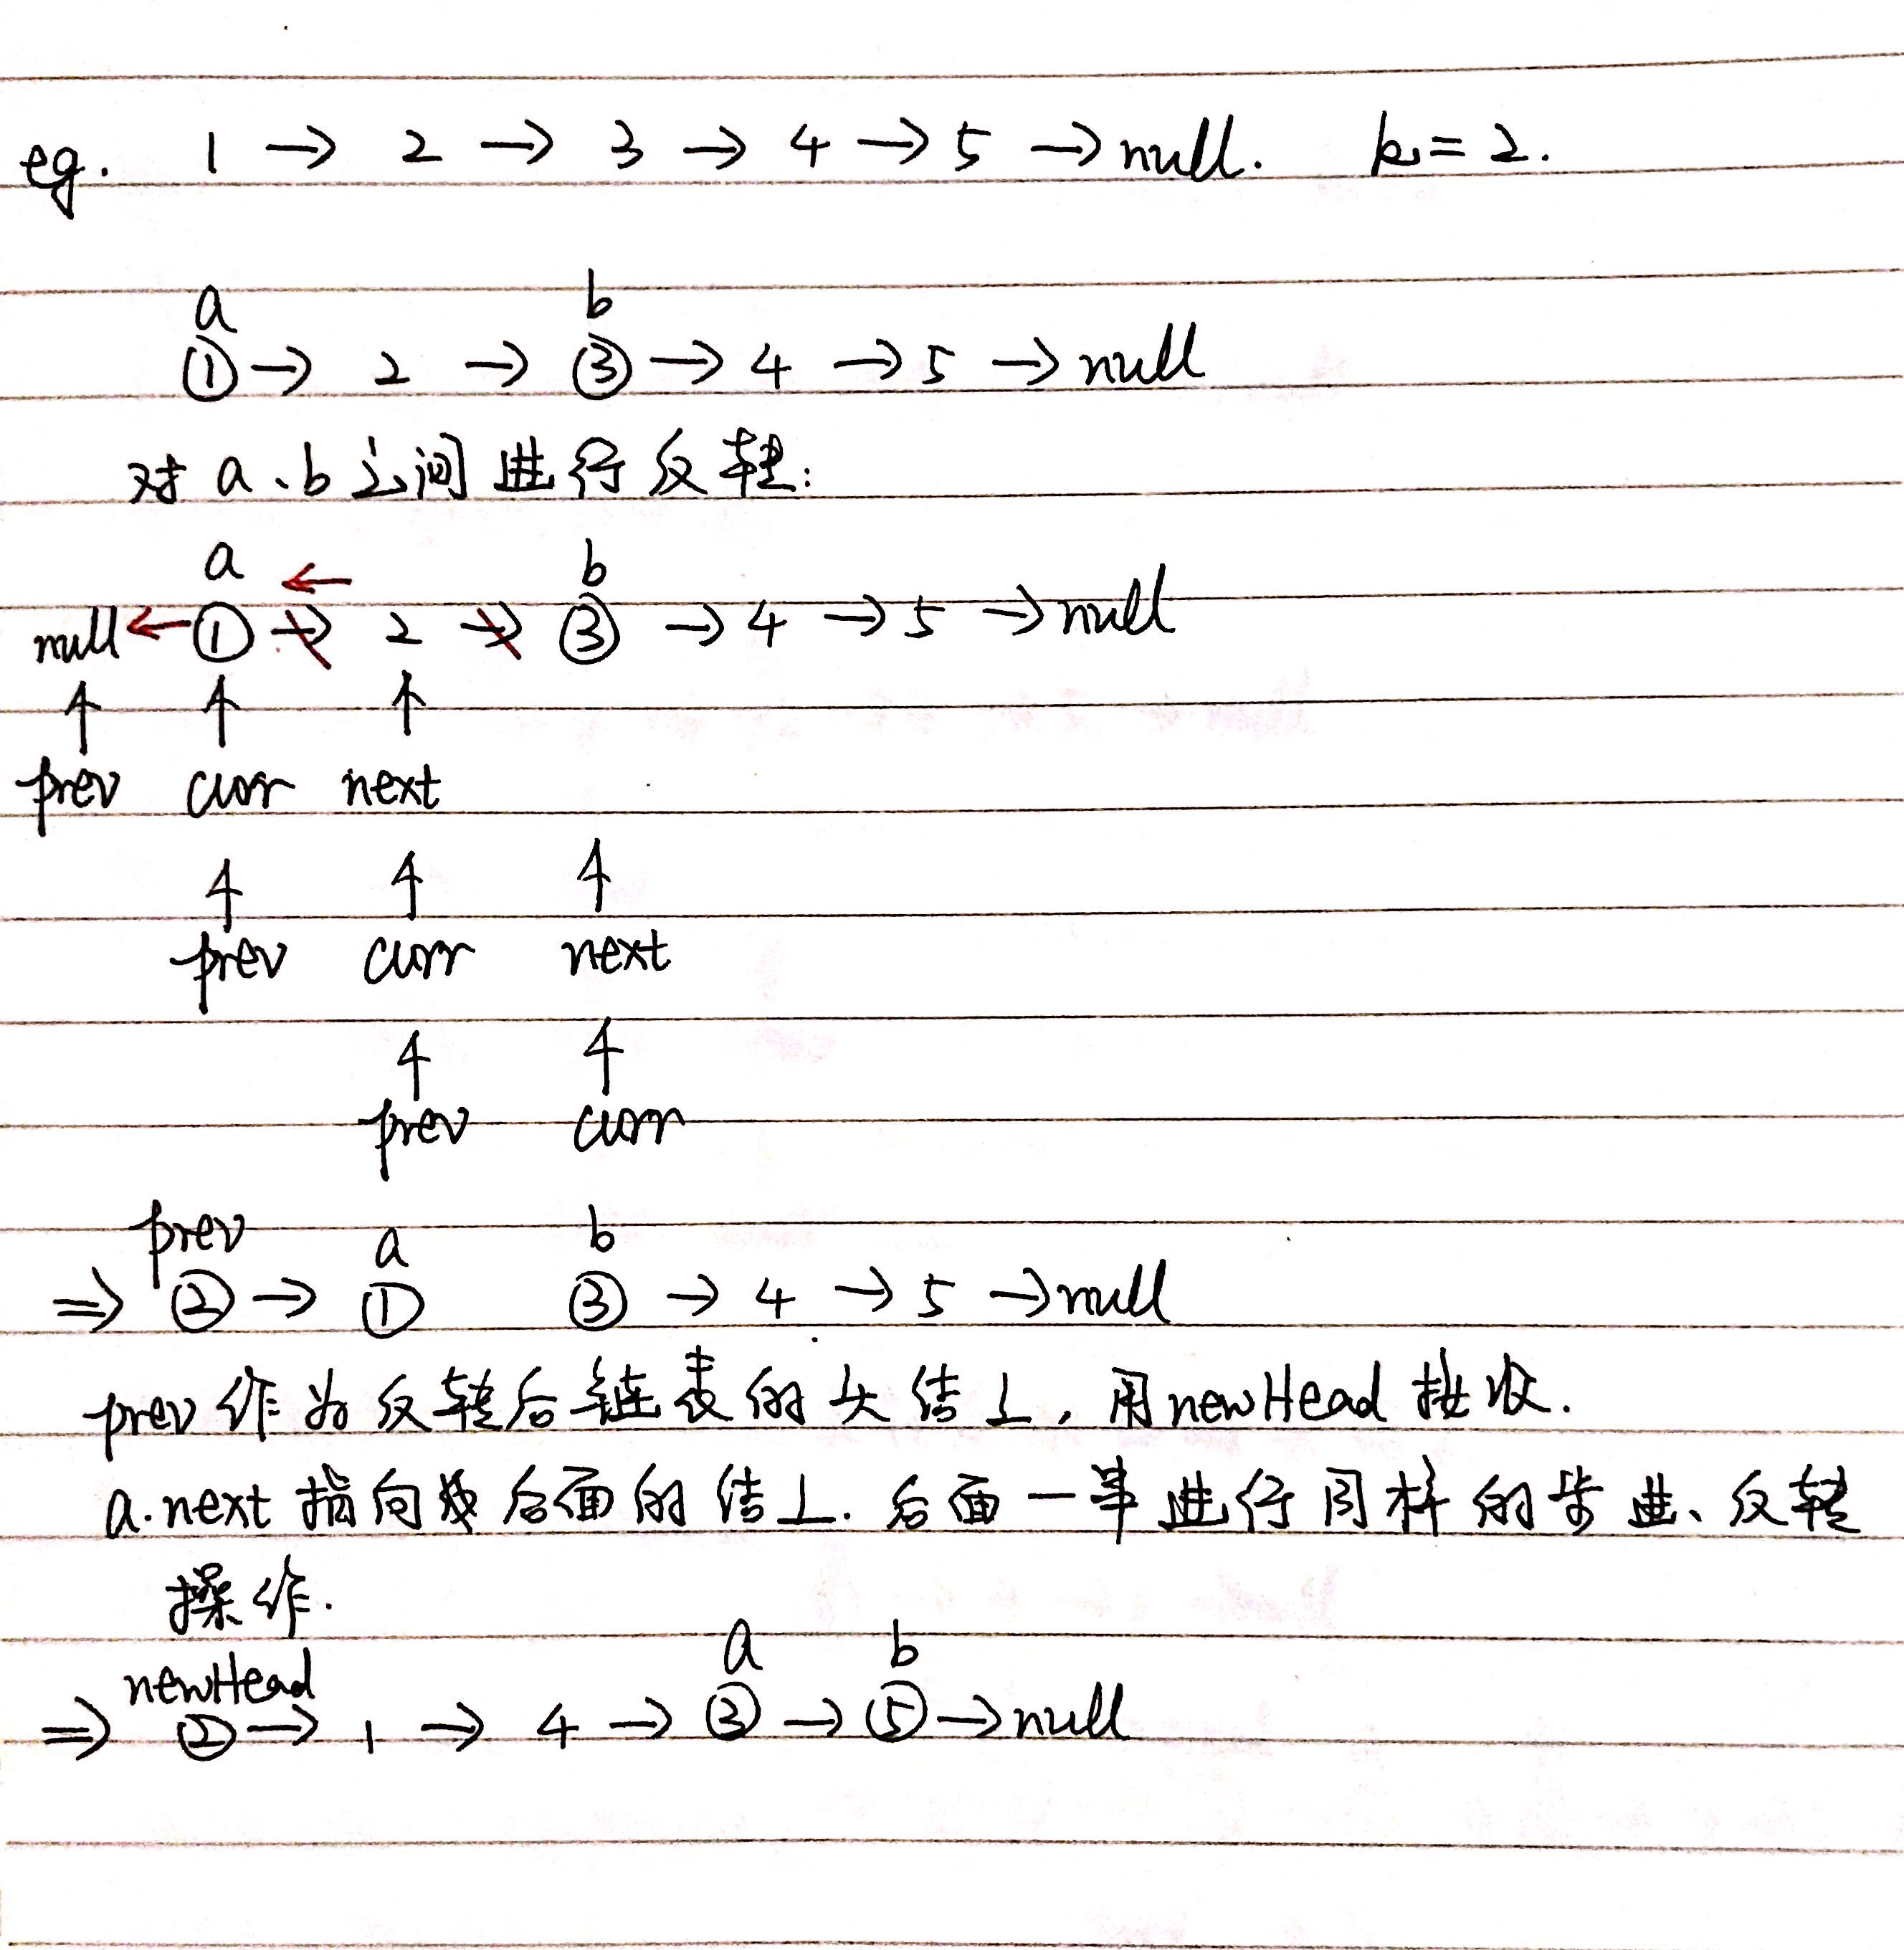 eg. 1 → 2 → 3 → 4 → 5 → null. k = 2.
a b
① → 2 → ③ → 4 → 5 → null
对 a、b 之间进行反转:
a ← b
null ← ① → 2 → ③ → 4 → 5 → null
↑ ↑ ↑
prev curr next
↑ ↑ ↑
prev curr next
↑ ↑
prev curr
prev a b
⇒ ② → ① ③ → 4 → 5 → null
prev 作为反转后链表的头结点, 用 newHead 接收.
a.next 指向后面的结点. 后面一半进行同样的步进、反转
操作.
newHead a b
⇒ ② → 1 → 4 → ③ → ⑤ → null